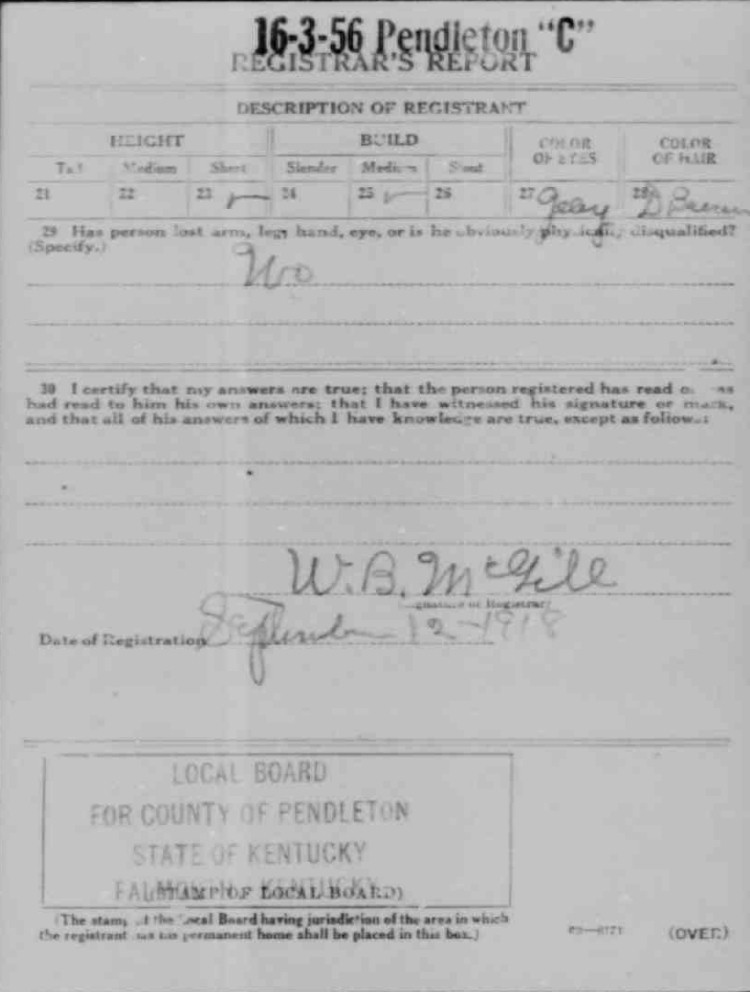 16-3-56 Pendleton “C”
REGISTRAR'S REPORT
DESCRIPTION OF REGISTRANT
HEIGHT BUILD COLOR OF EYES COLOR OF HAIR
Tall Medium Short Slender Medium Stout
21 22 23 ✓ 24 25 ✓ 26 27 Grey 28 D Brown
29 Has person lost arm, leg, hand, eye, or is he obviously physically disqualified?
(Specify.)
No
30 I certify that my answers are true; that the person registered has read or has
had read to him his own answers; that I have witnessed his signature or mark,
and that all of his answers of which I have knowledge are true, except as follows:
W. B. McGill
Signature of Registrar
Date of Registration September 12-1918
LOCAL BOARD
FOR COUNTY OF PENDLETON
STATE OF KENTUCKY
FALMOUTH, KENTUCKY
(STAMP OF LOCAL BOARD)
(The stamp of the Local Board having jurisdiction of the area in which
the registrant has his permanent home shall be placed in this box.)
(OVER)